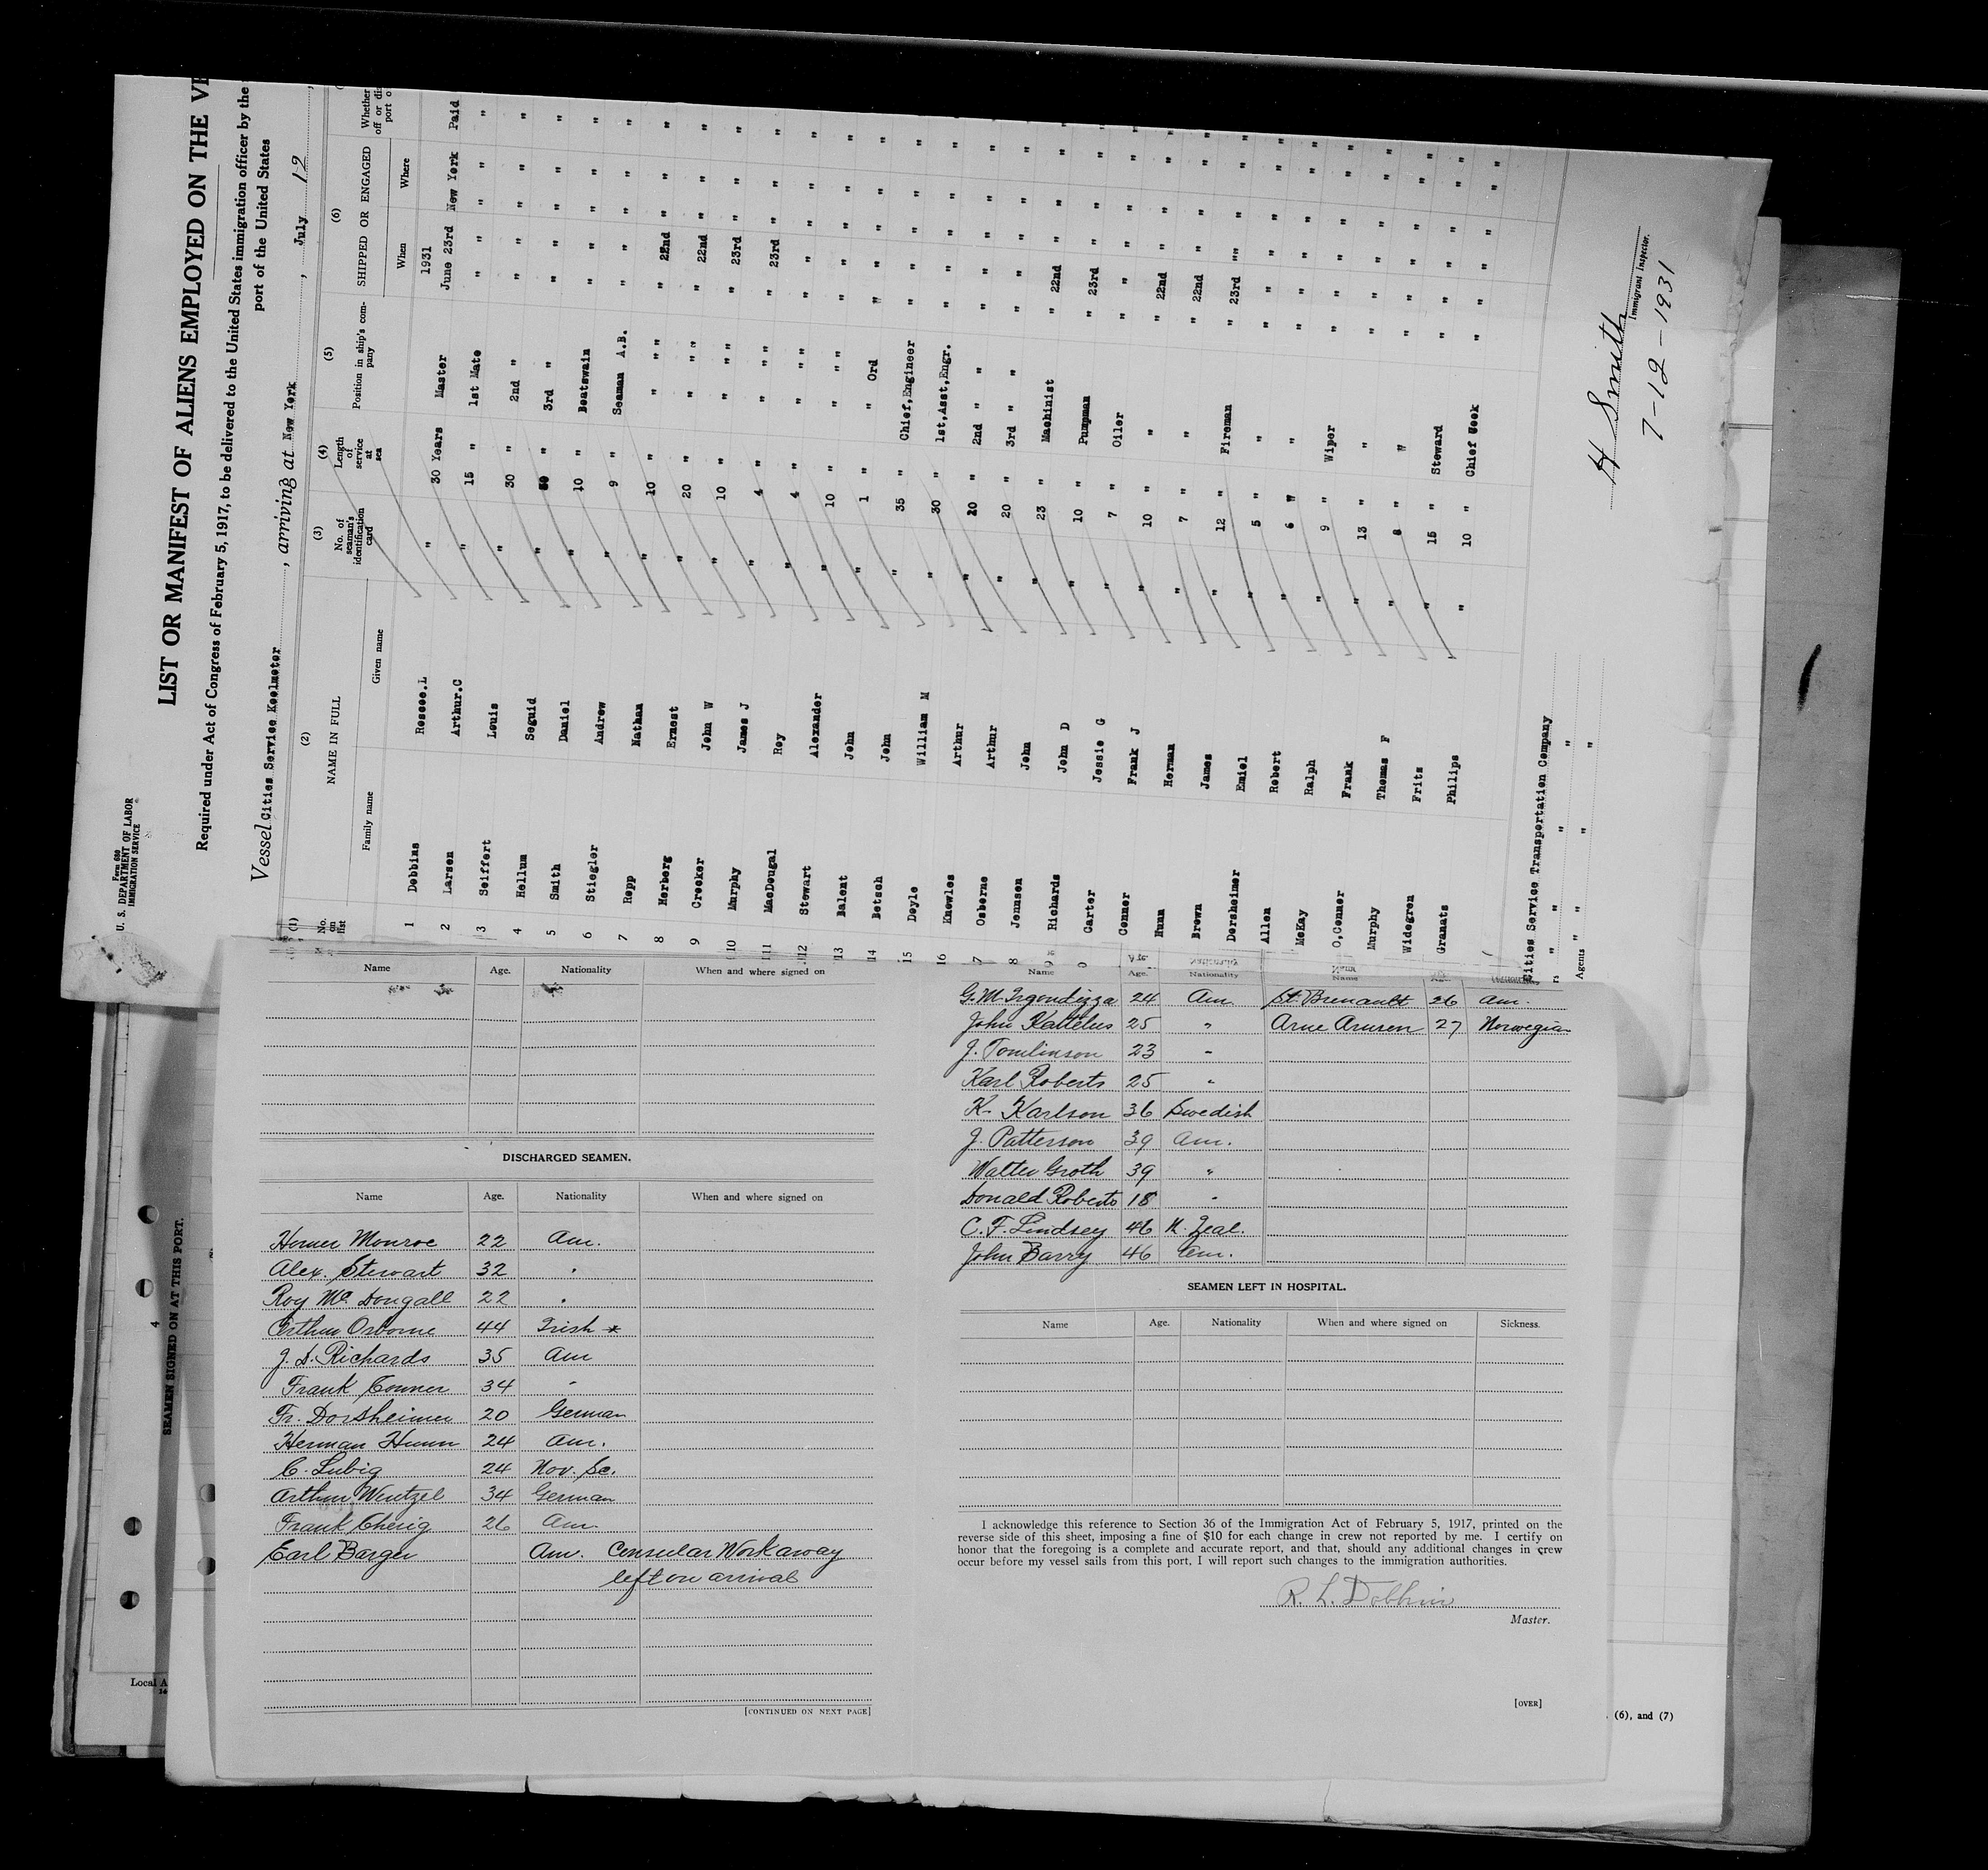 Form 680
U. S. DEPARTMENT OF LABOR
IMMIGRATION SERVICE
LIST OR MANIFEST OF ALIENS EMPLOYED ON THE
Required under Act of Congress of February 5, 1917, to be delivered to the United States immigration officer by the
port of the United States
Vessel Cities Service Koolmotor, arriving at New York, July 12,
(1) (2) (3) (4) (5) (6)
No. on list NAME IN FULL No. of seaman's identification card Length of service at sea Position in ship's company SHIPPED OR ENGAGED Whether
off or
port
Family name Given name When Where
1931
1 Dobbins Roscoe.L " 30 Years Master June 23rd New York Paid
2 Larsen Arthur.C " 15 " 1st Mate " " " " "
3 Seiffert Louis " 30 " 2nd " " " " " "
4 Hellum Seguid " " 3rd " " " " " "
5 Smith Daniel " 10 " Boatswain " " " " "
6 Stiegler Andrew " 9 " Seaman A.B. " " " " "
7 Repp Nathan " 10 " " " " " 22nd " " "
8 Herberg Ernest " 20 " " " " " 22nd " " "
9 Crocker John W " 10 " " " " " 23rd " " "
10 Murphy James J " 4 " " " " " 23rd " " "
11 MacDougal Roy " 4 " " " " " " " " "
12 Stewart Alexander " 10 " " " " " " " " "
13 Balent John " 1 " " Ord " " " " "
14 Betsch John " 35 " Chief,Engineer " " " " "
15 Doyle William M " 30 " 1st,Asst,Engr. " " " " "
16 Knowles Arthur " " 2nd " " " " " " "
7 Osborne Arthur " 20 " 3rd " " " " " " "
8 Jennsen John " 23 " Machinist " 22nd " " "
9 Richards John D " 10 " Pumpman " 23rd " " "
Carter Jessie G " 7 " Oiler " " " " "
Conner Frank J " 10 " " " 22nd " " "
Hunn Herman " 7 " " " 22nd " " "
Brown James " 12 " Fireman " 23rd " " "
Dorsheimer Emiel " 5 " " " " " " "
Allen Robert " 6 " " " " " " "
McKay Ralph " 9 " Wiper " " " " "
O,Conner Frank " 13 " " " " " " "
Murphy Thomas F " " " " " " " "
Widegren Fritz " 15 " Steward " " " " "
Granats Philips " 10 " Chief Cook " " " " "
Cities Service Transportation Company
" " " "
Agents " " " "
H Smith
Immigrant Inspector.
7-12-1931
Name Age. Nationality When and where signed on
DISCHARGED SEAMEN.
Name Age. Nationality When and where signed on
Homer Monroe 22 Am.
Alex. Stewart 32 "
Roy Mc Dougall 22 "
Arthur Osborne 44 Irish *
J. D. Richards 35 Am
Frank Conner 34 "
Fr. Dorsheimer 20 German
Herman Hunn 24 Am.
C. Lubig 24 Nov. Sc.
Arthur Wentzel 34 German
Frank Cherig 26 Am.
Earl Barger Am. Consular Workaway
left on arrival
[CONTINUED ON NEXT PAGE]
Name Age. Nationality Name
G. M. 24 Am. St. Brenault 26 Am.
John Kattelus 25 " Arne Arnsen 27 Norwegian
J. Tomlinson 23 "
Karl Roberts 25 "
K. Karlson 36 Swedish
J. Patterson 39 Am.
Walter Groth 39 "
Donald Roberts 18 "
C. F. Lindsey 46 N. Zeal.
John Barry 46 Am.
SEAMEN LEFT IN HOSPITAL.
Name Age. Nationality When and where signed on Sickness.
I acknowledge this reference to Section 36 of the Immigration Act of February 5, 1917, printed on the
reverse side of this sheet, imposing a fine of $10 for each change in crew not reported by me. I certify on
honor that the foregoing is a complete and accurate report, and that, should any additional changes in crew
occur before my vessel sails from this port, I will report such changes to the immigration authorities.
R. L. Dobbins
Master.
[OVER]
4
SEAMEN SIGNED ON AT THIS PORT.
Local
(6), and (7)